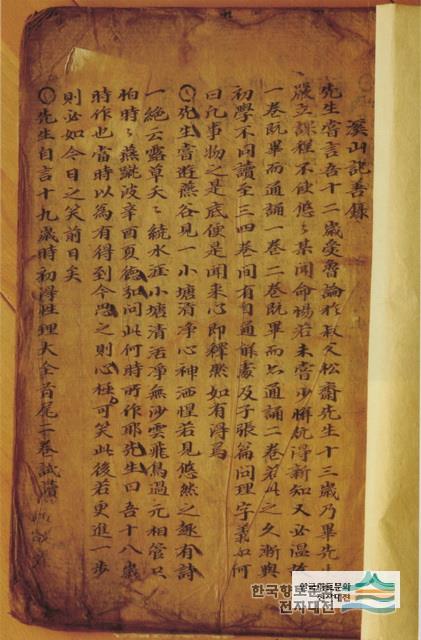 溪山記善錄
先生嘗言吾十二歲受魯論於叔父松齋先生十三歲乃畢先生
嚴立課程不使悠悠某聞命惕若未嘗少懈旣得新知又必溫故
一卷旣畢而通誦一卷二卷旣畢而亦通誦二卷若此之久漸與
初學不同讀至三四卷間有自通解處及子張篇問理字義如何
曰凡事物之是底便是聞來心卽釋然如有得焉
○先生嘗遊燕谷見一小塘淸淨心神洒惺若見悠然之趣有詩
一絶云露草夭夭繞水涯小塘淸活淨無沙雲飛鳥過元相管只
怕時時燕蹴波辛酉夏德弘問此何時所作耶先生曰吾十八歲
時作也當時以爲有得到今思之則心極可笑此後若更進一步
則必如今日之笑前日矣
○先生自言十九歲時初得性理大全首尾二卷試讀
한국향토문화
전자대전
한국향토문화
전자대전